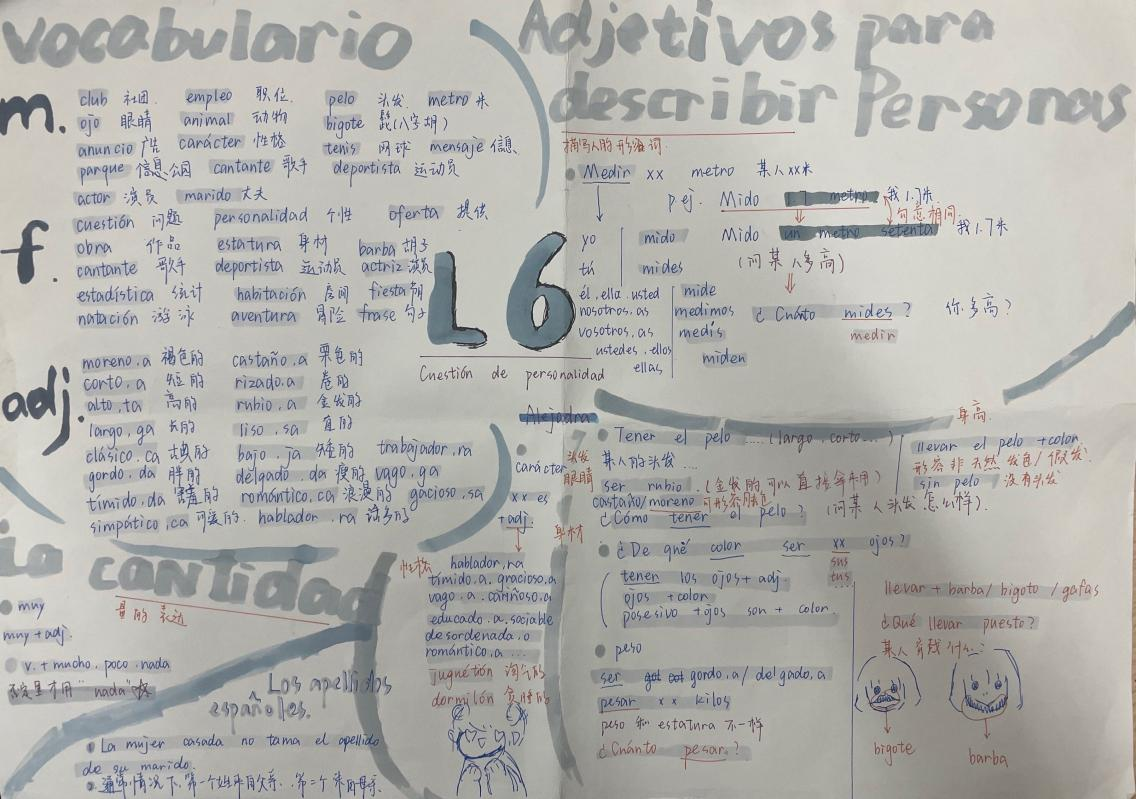 vocabulario
m.
club 社团 empleo 职位 pelo 头发 metro 米
ojo 眼睛 animal 动物 bigote 髭(八字胡)
anuncio 广告 carácter 性格 tenis 网球 mensaje 信息
parque 公园 cantante 歌手 deportista 运动员
actor 演员 marido 丈夫
f.
cuestión 问题 personalidad 个性 oferta 提供
obra 作品 estatura 身材 barba 胡子
cantante 歌手 deportista 运动员 actriz 演员
estadística 统计 habitación 房间 fiesta
natación 游泳 aventura 冒险 frase 句子
adj.
moreno.a 褐色的 castaño.a 栗色的
corto.a 短的 rizado.a 卷的
alto.ta 高的 rubio.a 金发的
largo.ga 长的 liso.sa 直的
clásico.ca 古典的 bajo.ja 矮的 trabajador.ra
gordo.da 胖的 delgado.da 瘦的 vago.ga
tímido.da 害羞的 romántico.ca 浪漫的 gacioso.sa
simpático.ca 可爱的. hablador.ra 话多的
La cantidad
量的表达
muy
muy + adj.
v. + mucho. poco. nada
否定里才用"nada"
Los apellidos
españoles.
La mujer casada no tama el apellido
de su marido.
通常情况下,第一个姓来自父系.第二个来自母系.
L6
Cuestión de personalidad
Adjetivos para
describir Personas
描写人的形容词
Medir xx metro 某人xx米
pej. Mido 1.7 metro 我1.7米
句意相同
Mido un metro setenta 我1.7米
(问某人多高)
¿Cuánto mides? 你多高?
medir
yo mido
tú mides
él.ella.usted mide
nosotros.as medimos
vosotros.as medís
ustedes.ellos miden
ellas
身高.
Alejadra
carácter
xx es
+adj.
性格
hablador.ra
tímido.a. gracioso.a
vago.a. cariñoso.a
educado.a. sociable
desordenada.o
romántico.a ...
juguetón 淘气的
dormilón 贪睡的
头发
眼睛
身材
Tener el pelo .... (largo. corto...)
某人的头发...
ser rubio. (金发的可以直接拿来用)
castaño/moreno 可形容肤色
¿Cómo tener al pelo? (问某人头发怎么样).
llevar el pelo +color
形容非天然发色/假发.
sin pelo 没有头发
¿De qué color ser xx ojos?
sus
tus
tener los ojos + adj.
ojos + color
posesivo + ojos son + color.
peso
ser gordo.a/ delgado.a
pesar xx kilos
peso 和 estatura 不一样
¿Cuánto pesar.?
llevar + barba/ bigote /gafas
¿Qué llevar puesto?
某人穿戴什么...?
bigote
barba